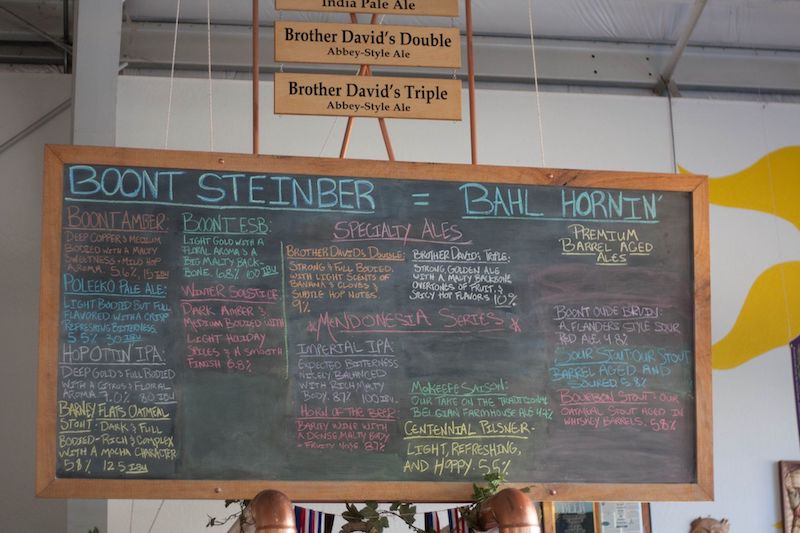 India Pale Ale
Brother David's Double
Abbey-Style Ale
Brother David's Triple
Abbey-Style Ale
BOONT STEINBER = BAHL HORNIN'
BOONT AMBER:
DEEP COPPER & MEDIUM
BODIED WITH A MALTY
SWEETNESS - MILD HOP
AROMA. 5.6% 15 IBU
POLEEKO PALE ALE:
LIGHT BODIED BUT FULL
FLAVORED WITH A CRISP
REFRESHING BITTERNESS.
5.5% 30 IBU
HOP OTTIN' IPA:
DEEP GOLD & FULL BODIED
WITH A CITRUS & FLORAL
AROMA. 7.0% 80 IBU
BARNEY FLATS OATMEAL
STOUT - DARK & FULL
BODIED - RICH & COMPLEX
WITH A MOCHA CHARACTER
5.8% 12.5 IBU
BOONT ESB:
LIGHT GOLD WITH A
FLORAL AROMA & A
BIG MALTY BACK-
BONE. 6.8% IBU
WINTER SOLSTICE
DARK AMBER &
MEDIUM BODIED WITH
LIGHT HOLIDAY
SPICES & A SMOOTH
FINISH 6.8%
SPECIALTY ALES
BROTHER DAVID'S DOUBLE:
STRONG & FULL BODIED,
WITH LIGHT SCENTS OF
BANANA & CLOVES &
SUBTLE HOP NOTES.
9%
BROTHER DAVID'S TRIPLE:
STRONG GOLDEN ALE
WITH A MALTY BACKBONE
OVERTONES OF FRUIT &
SPICY HOP FLAVORS 10%
MENDONESIA SERIES
IMPERIAL IPA
EXPECTED BITTERNESS
NICELY BALANCED
WITH RICH MALTY
BODY. 8.7% 100 IBU
HORN OF THE BEER
BARLEY WINE WITH
A DENSE MALTY BODY
- FRUITY NOSE 8.7%
MOKEEFE SAISON:
OUR TAKE ON THE TRADITIONAL
BELGIAN FARMHOUSE ALE
CENTENNIAL PILSNER -
LIGHT, REFRESHING,
AND HOPPY. 5.5%
PREMIUM
BARREL AGED
ALES
BOONT OUDE BRUIN:
A FLANDERS STYLE SOUR
RED ALE 4.8%
SOUR STOUT: OUR STOUT
BARREL AGED AND
SOURED 5.8%
BOURBON STOUT: OUR
OATMEAL STOUT AGED IN
WHISKEY BARRELS. 5.8%